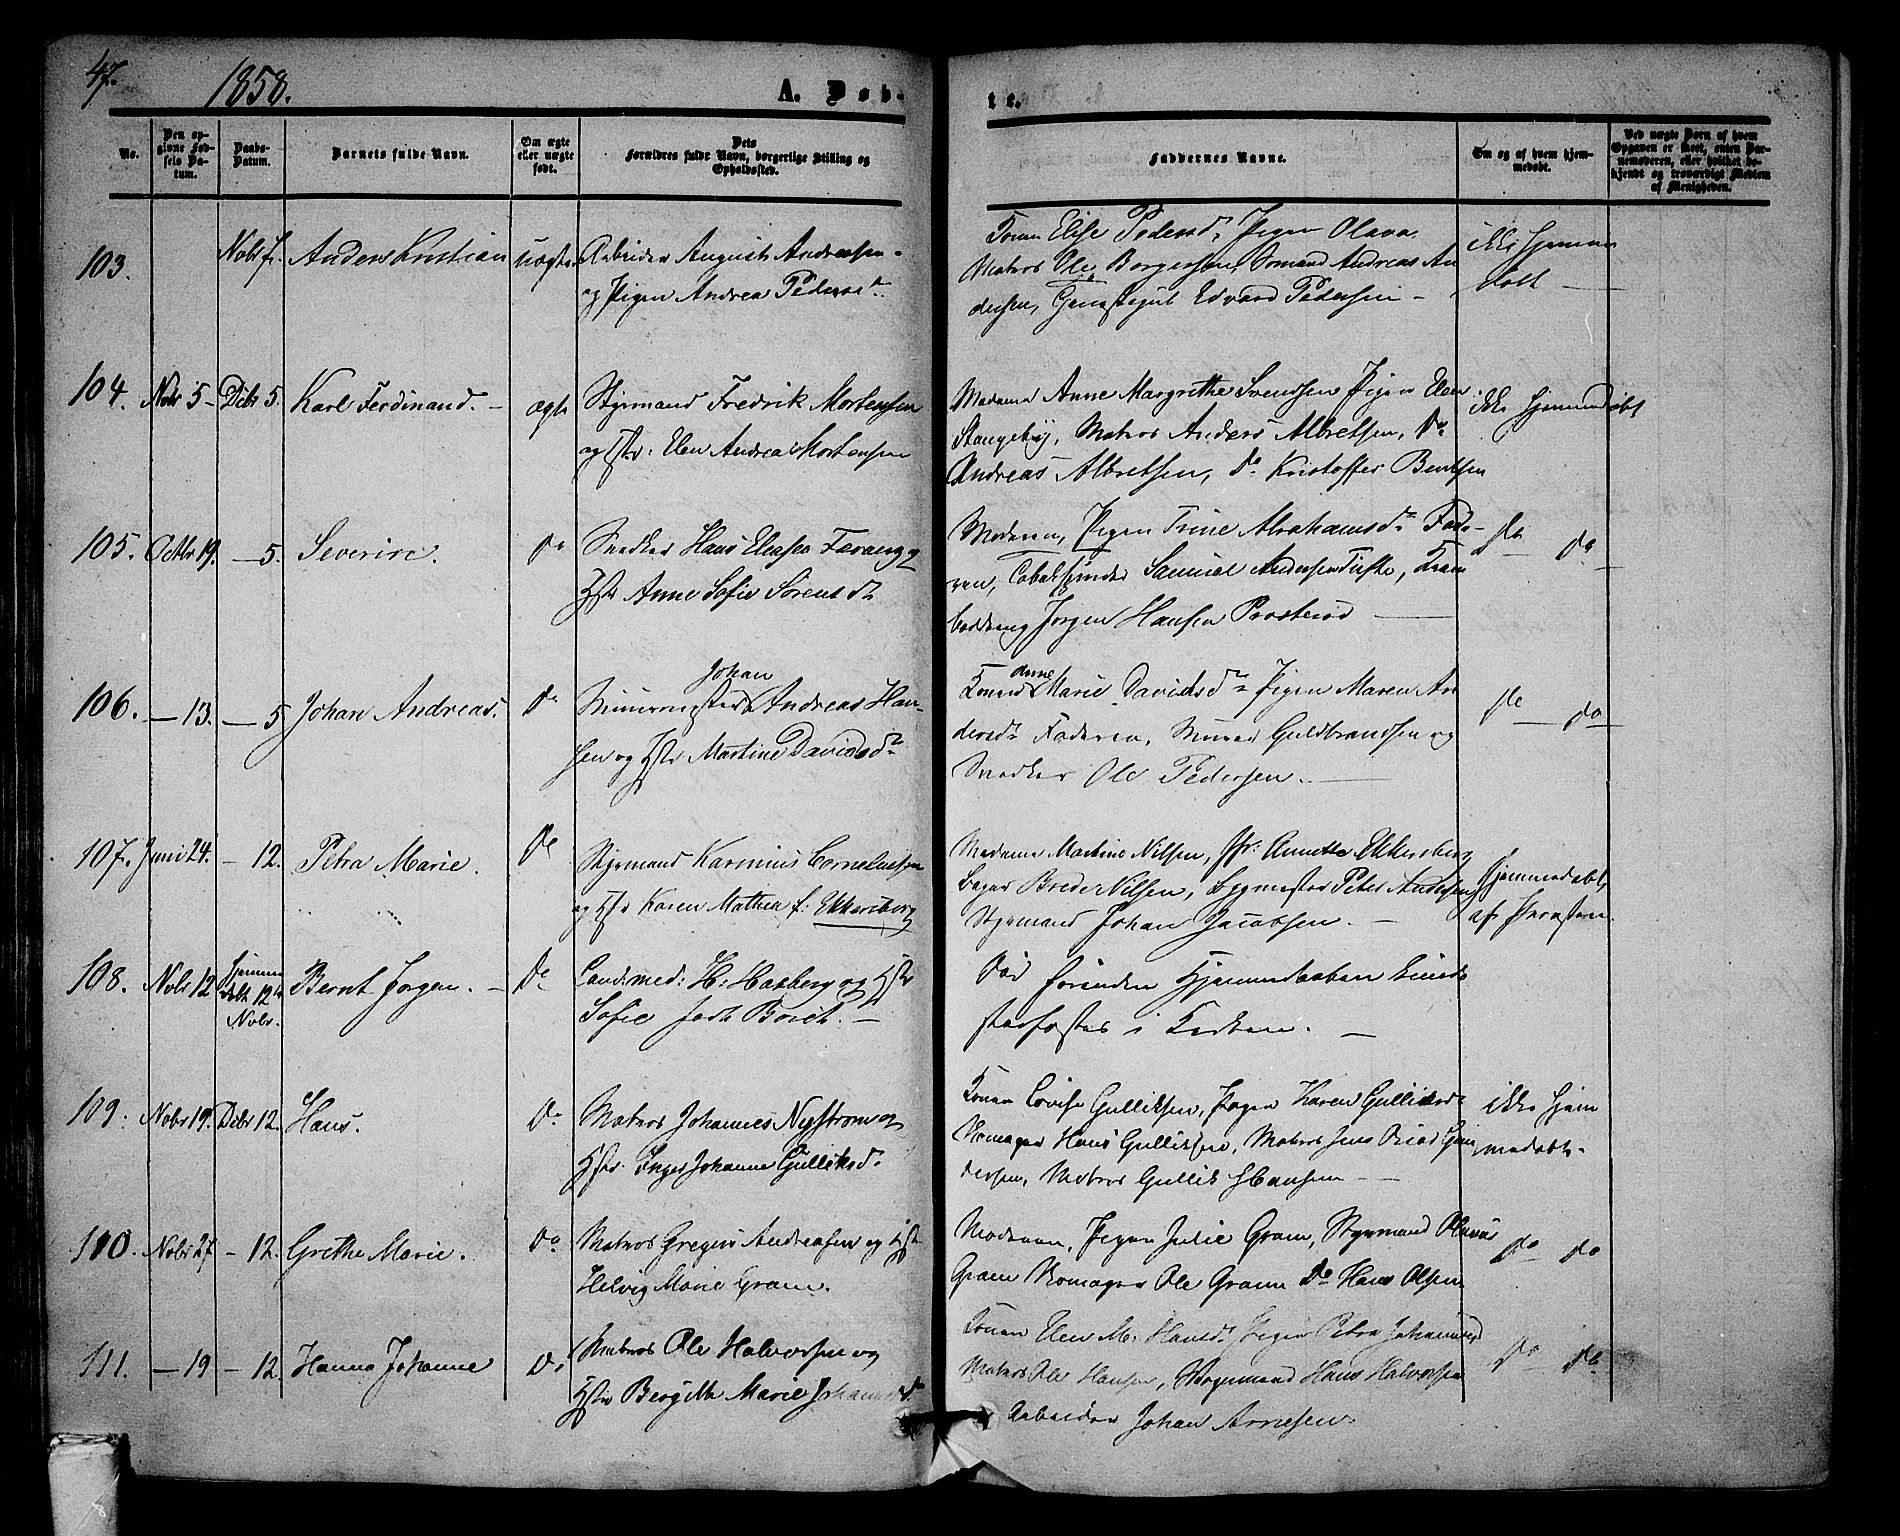 47.
1858.
A. Døb-
te.
No.
Den op-
givne Fød-
sels Da-
tum.
Daabs-
Datum.
Barnets fulde Navn.
Om ægte
eller uægte
født.
Dets
Forældres fulde Navn, borgerlige Stilling og
Opholdssted.
Faddernes Navne.
Om og af hvem hjem-
medøbt.
Ved uægte Børn af hvem
Opgaven er skeet, enten Bar-
nemoderen, eller hvilket be-
kjendt og troværdigt Medlem
af Menigheden.
103.
Anders Kristian
uægte
Arbeider August Andreassen
og Pigen Andrea Pedersd.
Konen Elise Pedersd. Pigen Olava
Matros Ole Borgersen, Sømand Andreas An
dersen, Edvard Pedersen
ikke hjemme
døbt
104.
Nobr 5
Debr 5.
Karl Ferdinand.
ægte
Styrmand Fredrik Mortensen
og Hstr: Elen Andrea Mortensen
Madame Anne Margrethe Svendsen Pigen Elen
Stangeby, Matros Anders Albretsen, Do
Andreas Albretsen, Do Kristoffer Bentsen
ikke hjemmedøbt
105.
Octbr 19.
— 5.
Severin.
Do
Snedker Hans
Hstr Anne Sofie Sørensdr
Moderen, Pigen Trine Abrahamsdr Fade-
ren, Samuel Andersen
Jørgen Hansen
Do — Do
106.
— 13.
— 5
Johan Andreas.
Do
Johan
Muurmester Andreas Han-
sen og Hstr Martine Davidsdr
Anne
Konen Marie Davidsdr Pigen Maren An
dersdr Faderen, Murer Guldbrandsen og
Snedker Ole Pedersen.
Do — Do
107.
Juni 24.
— 12.
Petra Marie.
Do
Styrmand Karinius Corneliussen
og Hstr Karen Mathea f: Ekkersberg
Madame Martine Nilsen, Jfr: Annette Ekkersberg
Nilsen, Peter Andersen,
Styrmand Johan Jacobsen.
Hjemmedøbt
af Præsten.
108.
Nobr 12
Hjemme
døbt 12te
Nobr.
Bernt Jørgen.
Do
Landsmed: H: Hasberg og Hstr
Sofie født
Død forinden Hjemmedaaben kunde
stadfæstes i Kirken.
109.
Nobr 19.
Debr 12.
Hans.
Do
Matros Johannes Nystrøm og
Hstr. Inger Johanne Gulliksd.
Konen Lovise Gulliksen, Pigen Karen Gulliksd.
Hans Gulliksen, Matros Jens
dersen, Matros Gullik Hansen
ikke hjem
medøbt
110.
Nobr 27.
— 12.
Grethe Marie.
Do
Matros Gregers Andreasen og Hstr
Helvig Marie Gram.
Moderen, Pigen Julie Gram, Styrmand Olaus
Gram Ole Gram Do Hans Olsen
Do Do
111.
— 19
— 12.
Hanna Johanne
Do
Matros Ole Halvorsen og
Hstr Bergitte Marie Johannesd
Konen Elen M. Hansdr Pigen Petra Johannesd
Matros Ole Hansen, Styrmand Hans Halvorsen
Arbeider Johan Arnesen.
Do — Do